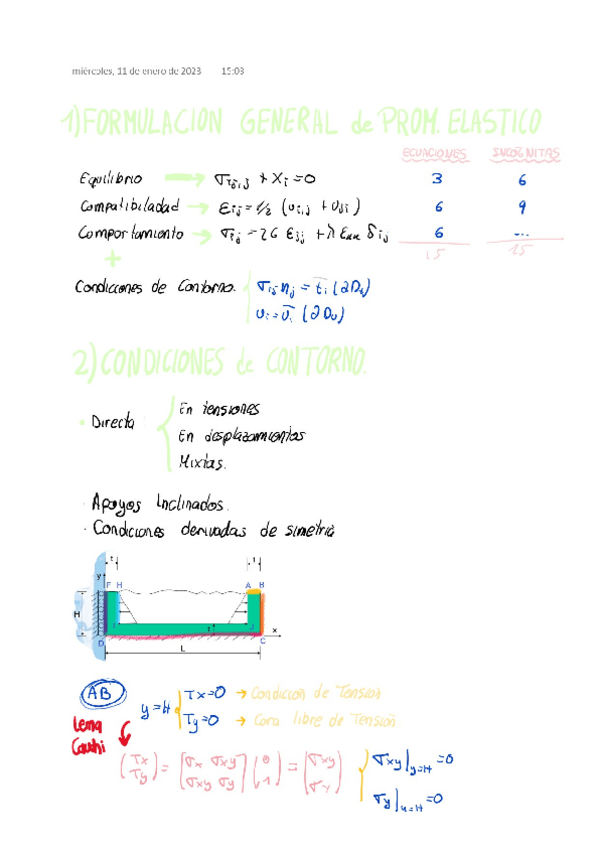 miércoles, 11 de enero de 2023 15:03
1) FORMULACION GENERAL de PROM. ELASTICO
ECUACIONES INCOGNITAS
Equilibrio → σij,j + Xi = 0 3 6
Compatibilidad → εij = 1/2 (ui,j + uj,i) 6 9
Comportamiento → σij = 2G εij + λ εkk δij 6 ...
+ 15 15
Condiciones de Contorno. σij nj = t̄i (∂Dt)
ui = ūi (∂Du)
2) CONDICIONES de CONTORNO.
· Directa : En tensiones
En desplazamientos
Mixtas.
· Apoyos Inclinados.
· Condiciones derivadas de simetría
t t
y F H A B
H
I J t x
D C
L
AB y=H Tx=0 → Condición de Tensión
Ty=0 → Cara libre de Tensión
Lema
Cauchi
(Tx Ty) = [σx σxy σxy σy] (0 1) = (σxy σy) σxy|y=H =0
σy|y=H =0